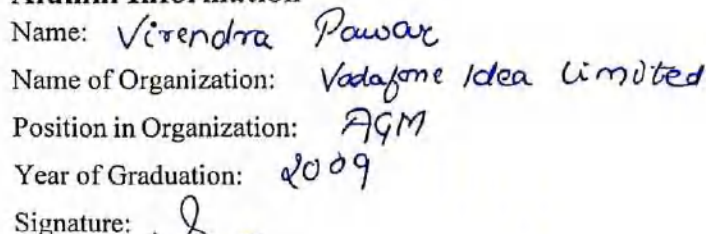 Alumni Information
Name: Virendra Pawar
Name of Organization: Vodafone Idea Limited
Position in Organization: AGM
Year of Graduation: 2009
Signature: